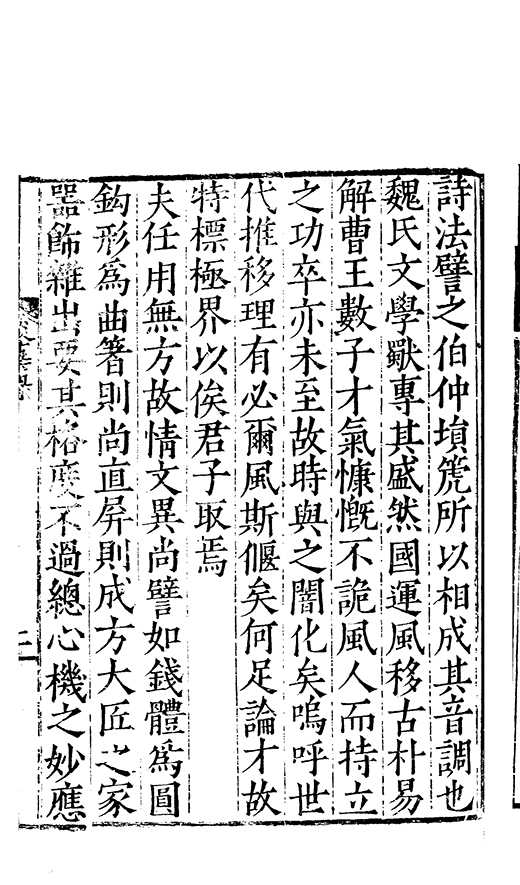 詩法譬之伯仲塤箎所以相成其音調也
魏氏文學獨專其盛然國運風移古朴易
解曹王數子才氣慷慨不詭風人而持立
之功卒亦未至故時與之闇化矣嗚呼世
代推移理有必爾風斯偃矣何足論才故
特標極界以俟君子取焉
夫任用無方故情文異尚譬如錢體爲圓
鈎形爲曲箸則尚直屏則成方大匠之家
器飾雜出要其格度不過總心機之妙應